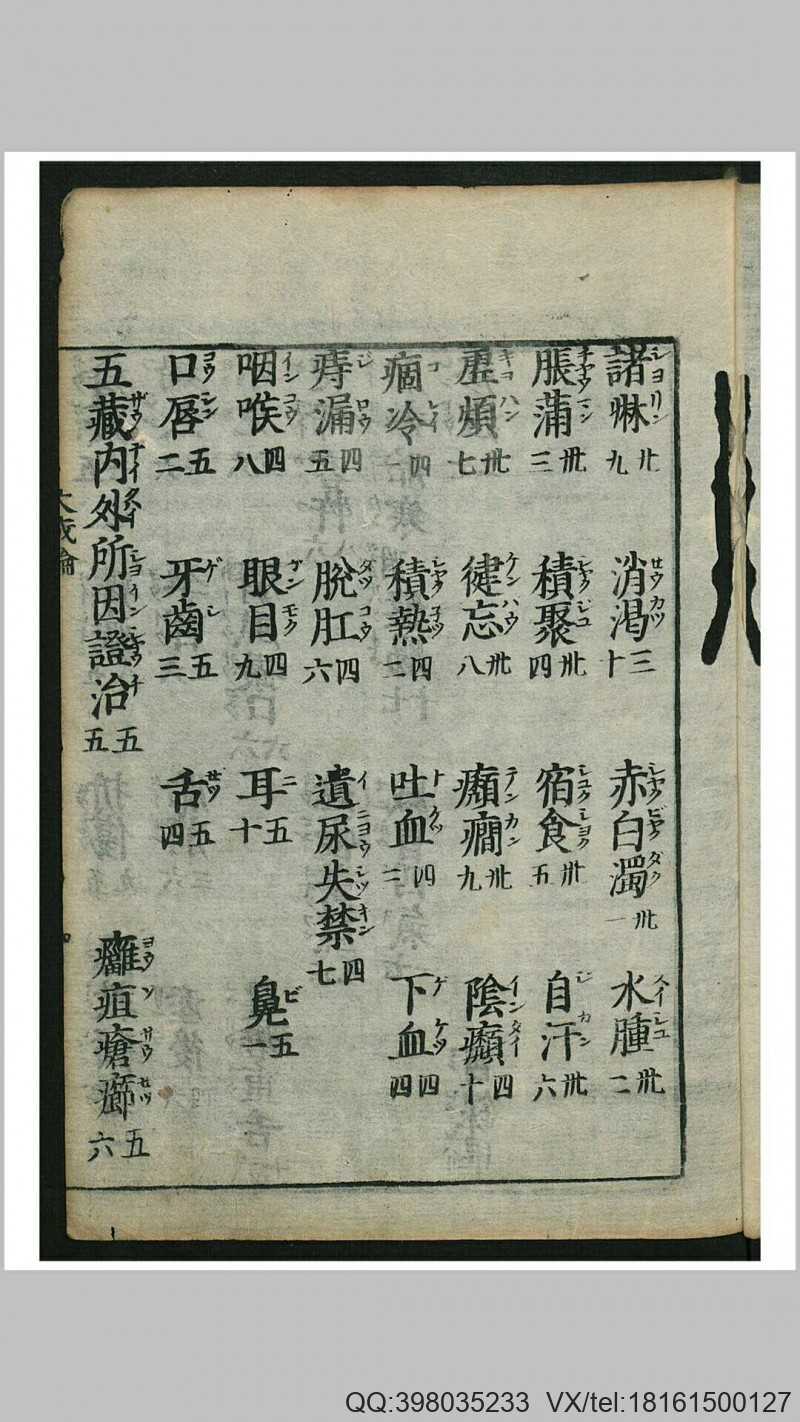 諸淋 廿九 消渴 三十 赤白濁 卅一 水腫 卅二
脹蒲 卅三 積聚 卅四 宿食 卅五 自汗 卅六
虛煩 卅七 健忘 卅八 癲癇 卅九 陰㿗 四十
痼冷 四一 積熱 四二 吐血 四三 下血 四四
痔漏 四五 脫肛 四六 遺尿失禁 四七
咽喉 四八 眼目 四九 耳 五十 鼻 五一
口唇 五二 牙齒 五三 舌 五四
五藏内外所因證治 五五 癰疽瘡癤 五六
大成論
QQ:398035233 VX/tel:18161500127